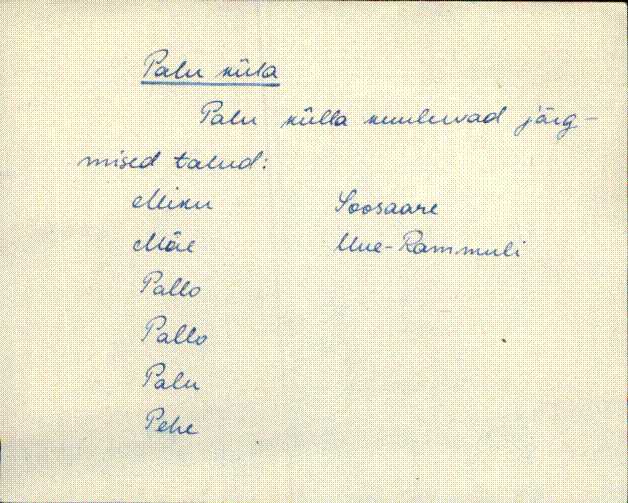 Palu küla
Palu külla kuuluvad järg-
mised talud:
Miku Soosaare
Mäe Uue-Rammuli
Pallo
Pallo
Palu
Pehe